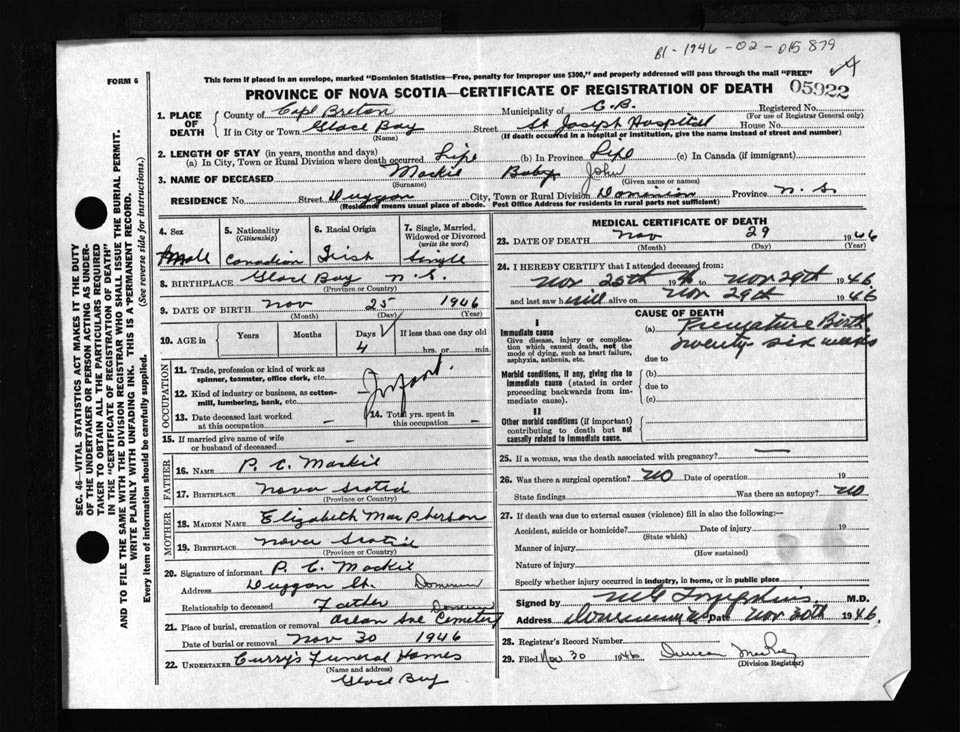 B1-1946-02-015-879
FORM 6
This form if placed in an envelope, marked "Dominion Statistics—Free, penalty for improper use $300," and properly addressed will pass through the mail "FREE"
PROVINCE OF NOVA SCOTIA—CERTIFICATE OF REGISTRATION OF DEATH 05922
1. PLACE OF DEATH County of Cape Breton Municipality of C.B. Registered No.
(For use of Registrar General only)
If in City or Town Glace Bay Street St Joseph Hospital House No.
(Name) (If death occurred in a hospital or institution, give the name instead of street and number)
2. LENGTH OF STAY (in years, months and days)
(a) In City, Town or Rural Division where death occurred Life (b) In Province Life (c) In Canada (if immigrant)
3. NAME OF DECEASED Mackie Baby John
(Surname) (Given name or names)
RESIDENCE No. Street Duggan City, Town or Rural Division Dominion Province N. S.
(Residence means usual place of abode. Post Office Address for residents in rural parts not sufficient)
4. Sex Male
5. Nationality (Citizenship) Canadian
6. Racial Origin Irish
7. Single, Married, Widowed or Divorced (write the word) Single
8. BIRTHPLACE Glace Bay N.S.
(Province or Country)
9. DATE OF BIRTH Nov 25 1946
(Month) (Day) (Year)
10. AGE in Years Months Days 4 If less than one day old
hrs. or min.
OCCUPATION
11. Trade, profession or kind of work as spinner, teamster, office clerk, etc. Infant.
12. Kind of industry or business, as cotton-mill, lumbering, bank, etc.
13. Date deceased last worked at this occupation –
14. Total yrs. spent in this occupation –
15. If married give name of wife or husband of deceased –
FATHER
16. NAME P. C. Mackie
17. BIRTHPLACE Nova Scotia
(Province or Country)
MOTHER
18. MAIDEN NAME Elizabeth MacPherson
19. BIRTHPLACE Nova Scotia
(Province or Country)
20. Signature of informant P. C. Mackie
Address Duggan St. Dominion
Relationship to deceased Father
21. Place of burial, cremation or removal Cemetery Dominion
Date of burial or removal Nov 30 1946
22. UNDERTAKER Curry's Funeral Homes
(Name and address)
Glace Bay
MEDICAL CERTIFICATE OF DEATH
23. DATE OF DEATH Nov 29 1946
(Month) (Day) (Year)
24. I HEREBY CERTIFY that I attended deceased from
Nov 25th 19 to Nov 29th 1946
and last saw h alive on Nov 29th 1946
CAUSE OF DEATH
I
Immediate cause
Give disease, injury or complication which caused death, not the mode of dying, such as heart failure, asphyxia, asthenia, etc.
(a) Premature Birth
twenty six weeks
due to
Morbid conditions, if any, giving rise to immediate cause (stated in order proceeding backwards from immediate cause).
(b)
due to
(c)
II
Other morbid conditions (if important) contributing to death but not causally related to immediate cause.
25. If a woman, was the death associated with pregnancy? —
26. Was there a surgical operation? No Date of operation 19
State findings Was there an autopsy? No
27. If death was due to external causes (violence) fill in also the following:—
Accident, suicide or homicide? Date of injury 19
(State which)
Manner of injury
(How sustained)
Nature of injury
Specify whether injury occurred in industry, in home, or in public place
Signed by M.D.
Address Date Nov 30th 1946
28. Registrar's Record Number
29. Filed Nov 30 1946 Duncan
(Division Registrar)
SEC. 46—VITAL STATISTICS ACT MAKES IT THE DUTY
OF THE UNDERTAKER OR PERSON ACTING AS UNDER-
TAKER TO OBTAIN ALL THE PARTICULARS REQUIRED
IN THE "CERTIFICATE OF REGISTRATION OF DEATH"
AND TO FILE THE SAME WITH THE DIVISION REGISTRAR WHO SHALL ISSUE THE BURIAL PERMIT.
WRITE PLAINLY WITH UNFADING INK. THIS IS A PERMANENT RECORD.
Every item of information should be carefully supplied. (See reverse side for instructions.)